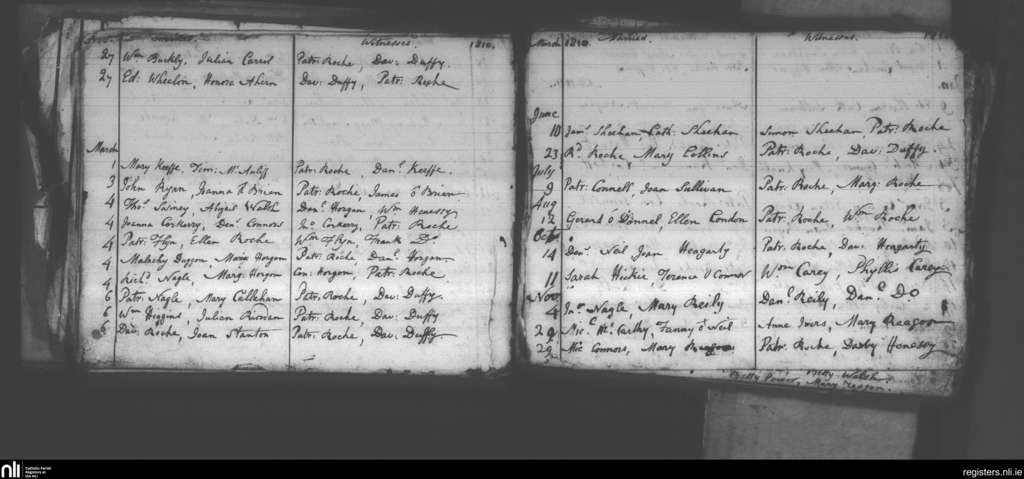 Witnesses. 1810.
27 Wm Buckly, Julian Carril Patr. Roche, Dav: Duffy.
27 Ed: Whealon, Honora Ahern Dav: Duffy, Patr: Roche
March
1 Mary Keeffe, Tim: Mc Auliff Patr: Roche, Danl. Keeffe.
3 John Ryan, Joanna O Brian Patr: Roche, James O Brian
4 Thos. Walsh Danl. Horgan, Wm Henessy
4 Joanna Corkerry, Denl. Connors Jno. Corkerry, Patr: Roche
4 Patr: Flyn, Ellen Roche Wm Flyn, Frank Do
4 Malachy Duggan Maria Horgan Patr: Roche, Danl. Horgan
4 Richd. Nagle, Marg: Horgan Con: Horgan, Patr: Roche
6 Patr: Nagle, Mary Callehan Patr: Roche, Dav: Duffy.
6 Wm Higgins, Julian Riordan Patr: Roche, Dav: Duffy
6 Dav: Roche, Joan Stanton Patr: Roche, Dav: Duffy
March 1810 Married. Witnesses.
June
10 Jams. Sheehan, Cath. Sheehan Simon Sheehan, Patr: Roche
23 Rd. Roche, Mary Collins Patr: Roche, Dav: Duffy.
July
9 Patr: Connell, Joan Sullivan Patr: Roche, Marg: Roche
Aug
12 Gerard O Donnel, Ellen Condon Patr: Roche, Wm Roche
Octr.
14 Denl. Neil Joan Heagarty Patr: Roche, Dav: Heagarty
11 Sarah Hickie, Terence O Connor Wm Carey, Phyllis Carey
Novr
4 Jno. Nagle, Mary Reily Danl. Reily, Danl. Do
29 Mic. Mc Carthy, Fanny O Neil Anne Ivers, Mary Reagan
29 Mic Connors, Mary Patr: Roche, Darby Henessy
Betty Walsh
Betty Power, Mary Reagan.
nli
Catholic Parish
Registers at
the NLI
registers.nli.ie